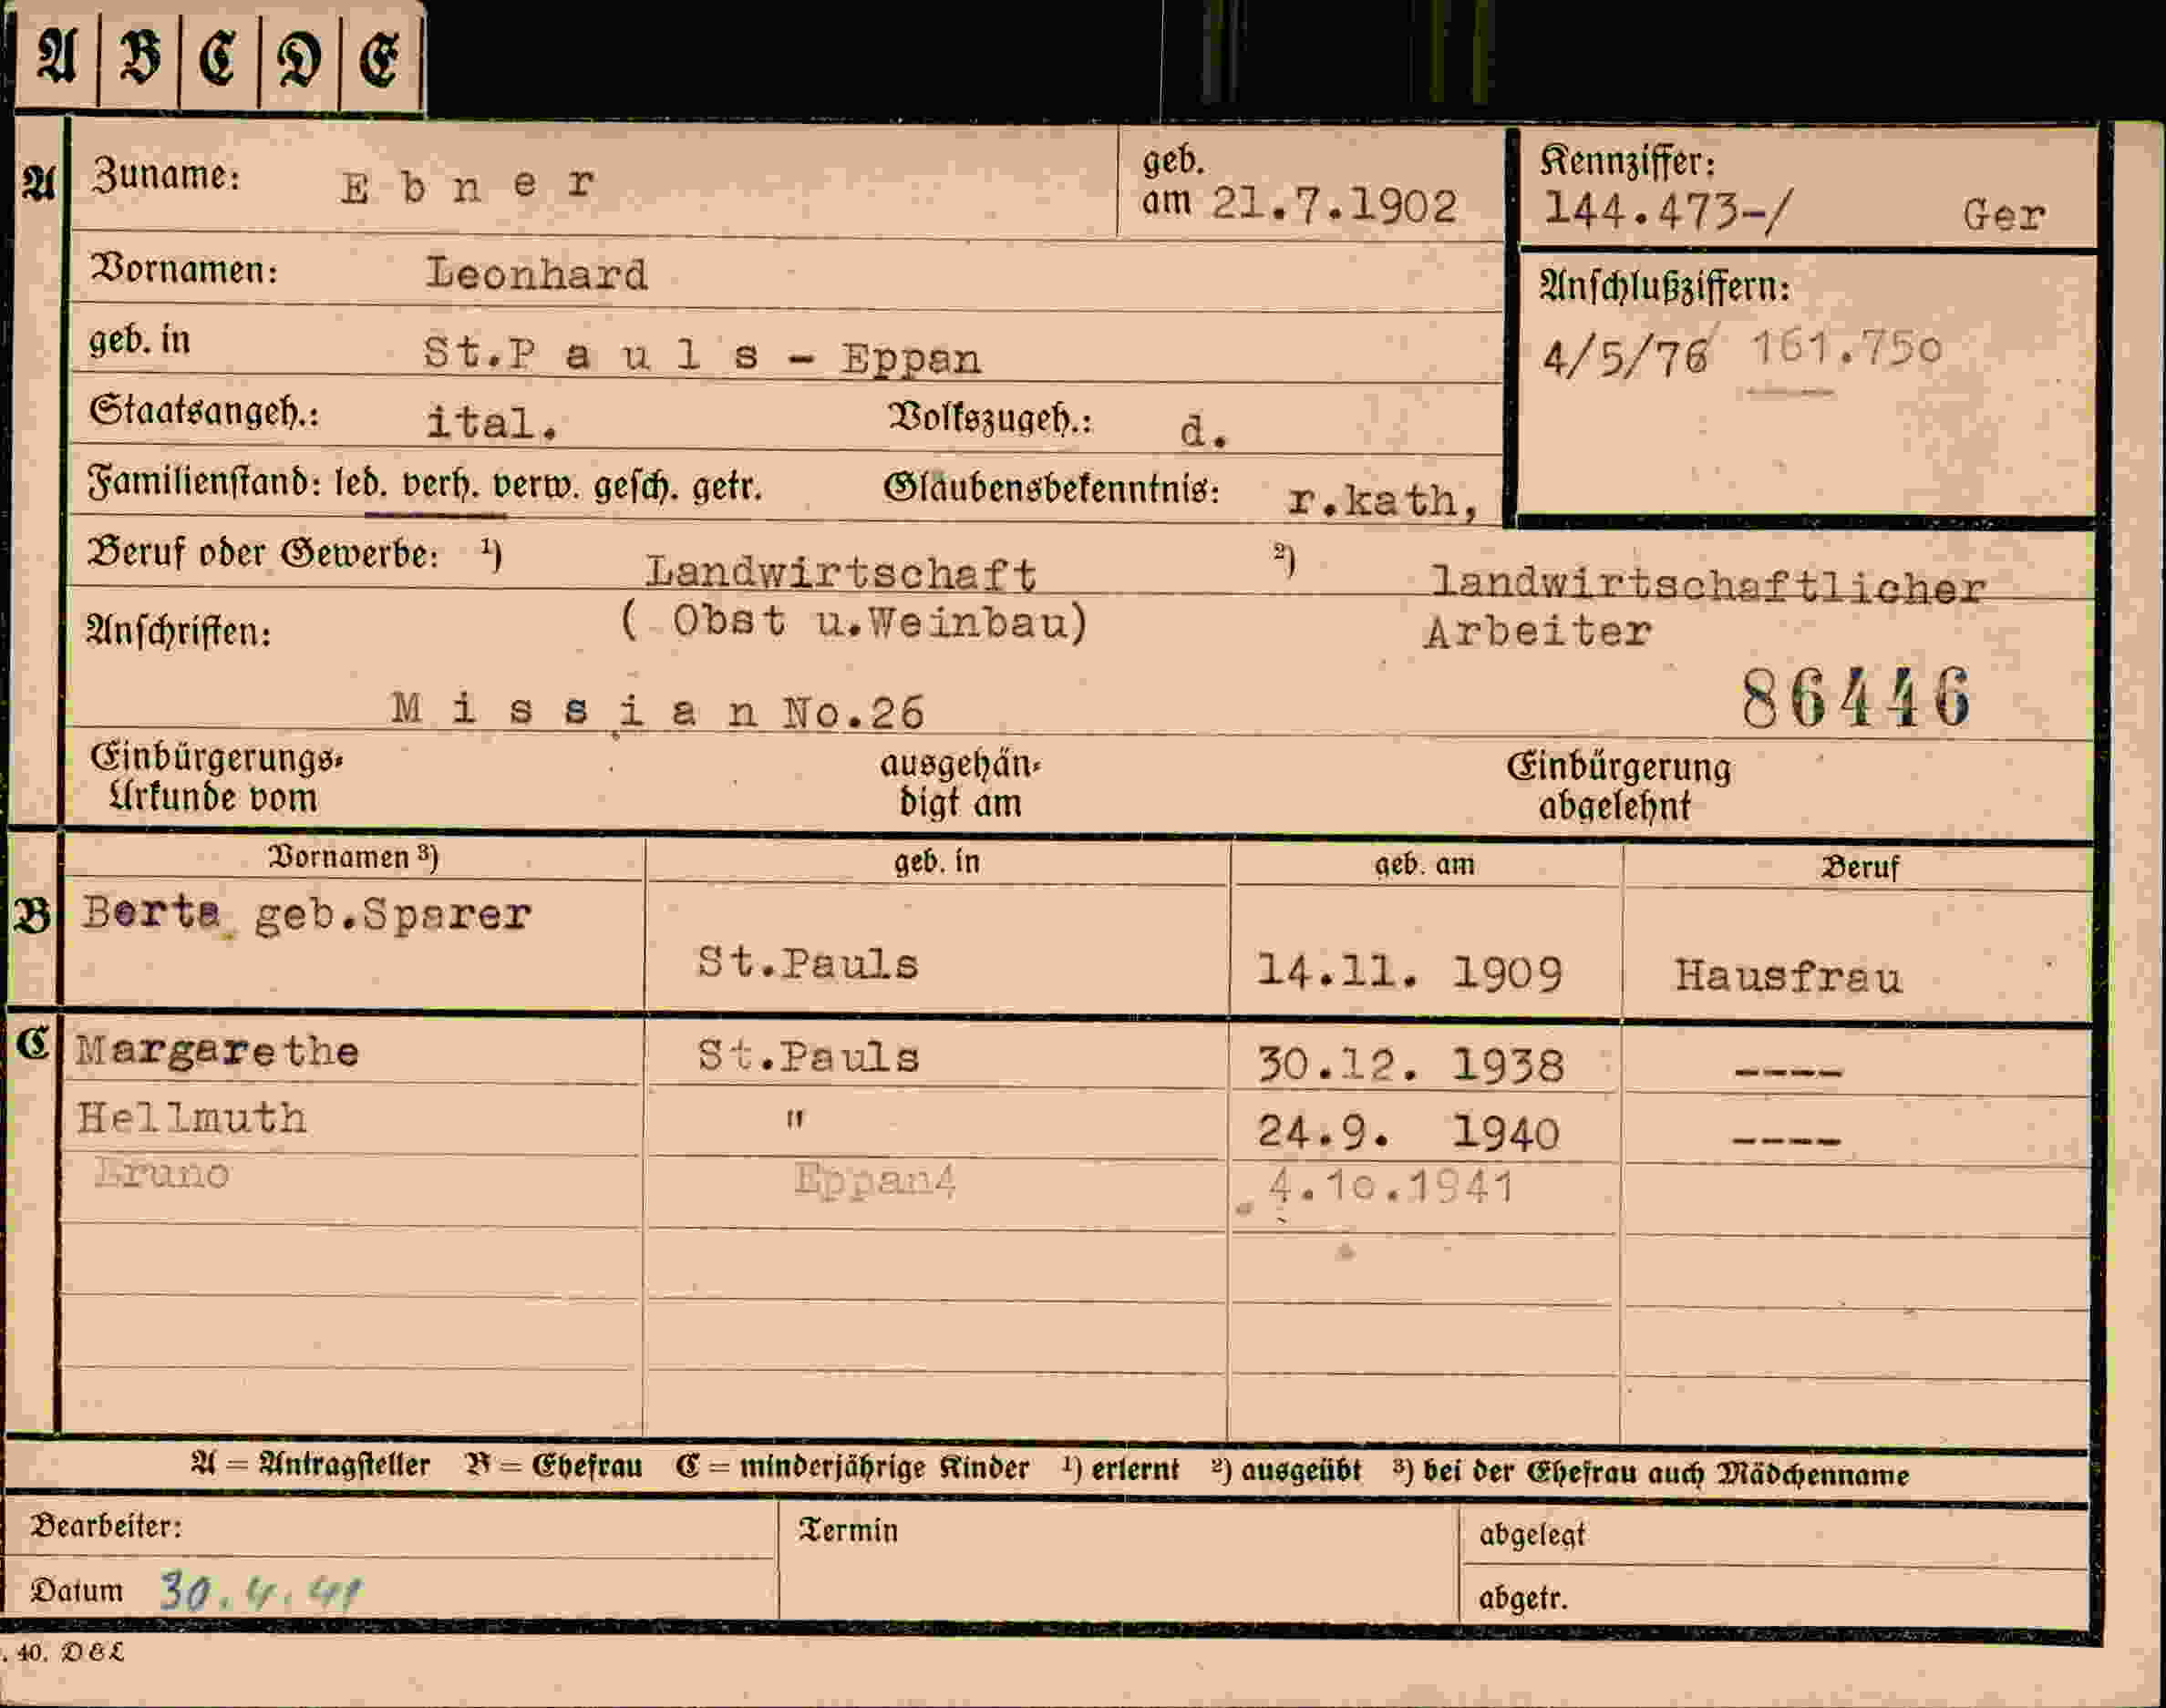 A B C D E
A Zuname: Ebner geb. am 21.7.1902 Kennziffer: 144.473-/ Ger
Vornamen: Leonhard Anschlußziffern:
geb. in St.Pauls - Eppan 4/5/76 161.750
Staatsangeh.: ital. Volkszugeh.: d.
Familienstand: led. verh. verw. gesch. getr. Glaubensbekenntnis: r.kath,
Beruf oder Gewerbe: ¹) Landwirtschaft ²) landwirtschaftlicher
Anschriften: ( Obst u.Weinbau) Arbeiter
86446
Missian No.26
Einbürgerungs- ausgehän- Einbürgerung
Urkunde vom digt am abgelehnt
Vornamen ³) geb. in geb. am Beruf
B Berta geb.Sparer
St.Pauls 14.11. 1909 Hausfrau
C Margarethe St.Pauls 30.12. 1938 ----
Hellmuth " 24.9. 1940 ----
Bruno Eppan4 4.10.1941
A = Antragsteller B = Ehefrau C = minderjährige Kinder ¹) erlernt ²) ausgeübt ³) bei der Ehefrau auch Mädchenname
Bearbeiter: Termin abgelegt
Datum 30.4.41 abgetr.
. 40. D&L